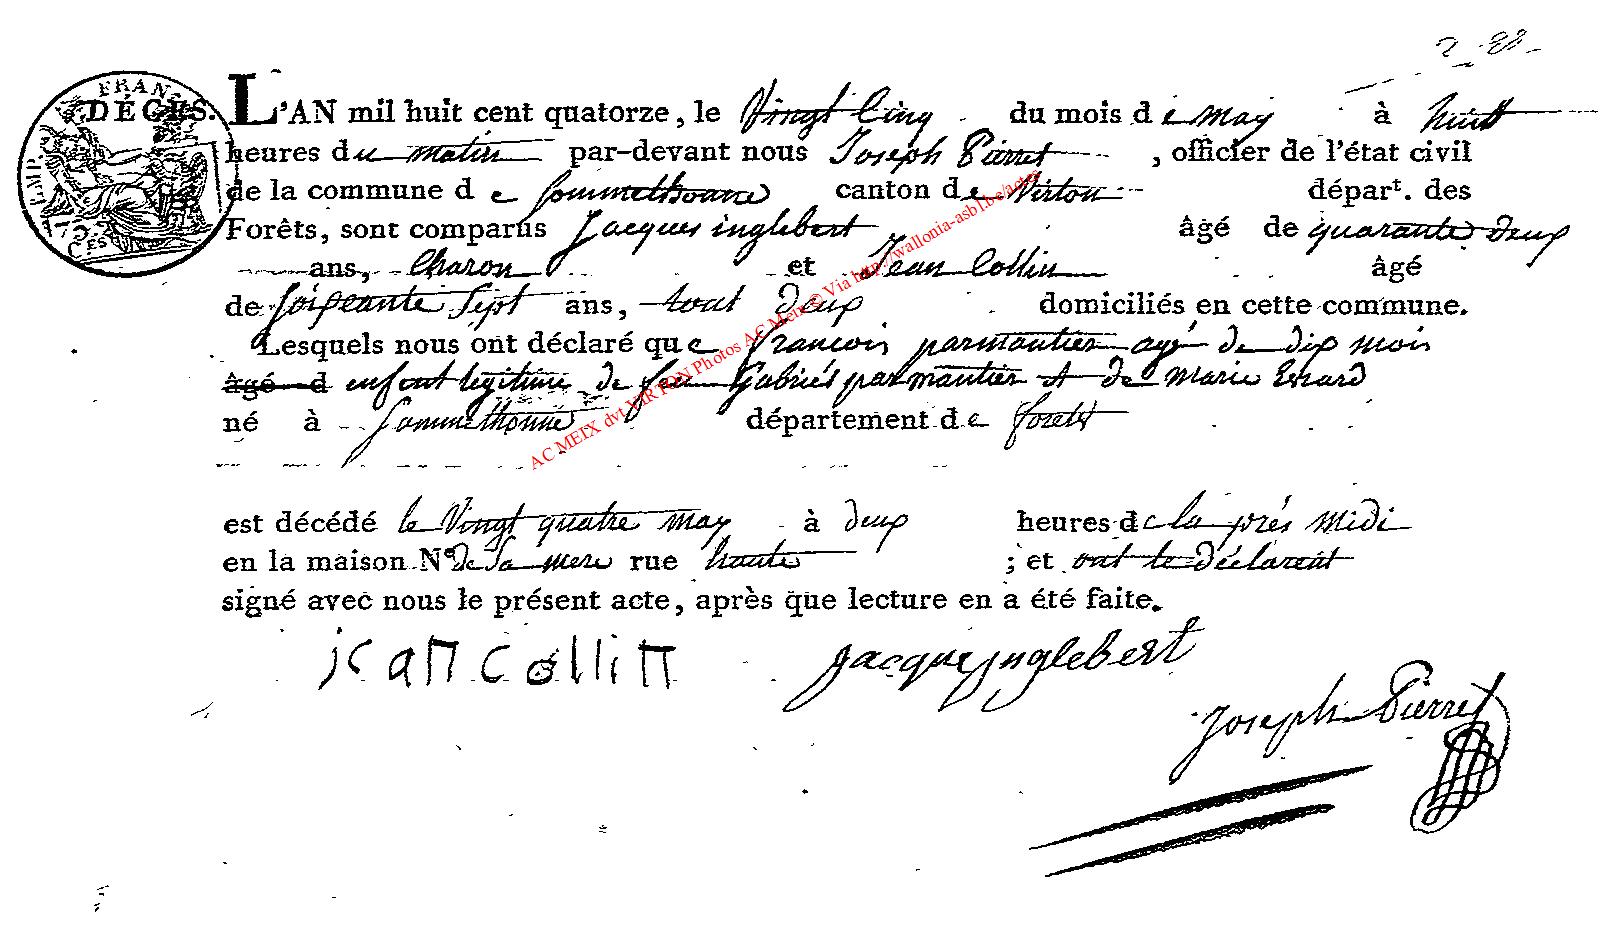 DÉCÈS. L'AN mil huit cent quatorze, le Vingt Cinq du mois de may à huit
heures du matin par-devant nous Joseph Pierret, officier de l'état civil
de la commune de Sommethonne canton de Virton dépar^t. des
Forêts, sont comparus Jacques inglebert âgé de quarante deux
ans, Charon et Jean Collin âgé
de soixante Sept ans, tout deux domiciliés en cette commune.
Lesquels nous ont déclaré que francois parmantier agé de dix mois
âgé d enfant legitime de feu Gabriel parmantier et de Marie Evrard
né à Sommethonne département de forêt
est décédé le Vingt quatre may à deux heures de la prés Midi
en la maison N° de Sa mere rue haute ; et ont le déclarent
signé avec nous le présent acte, après que lecture en a été faite.
jean collin Jacque Jnglebert
Joseph Pierret
EMP. FRANÇ.
75 Ces
AC MEIX dvt VIRTON Photos AC Meix © Via http://wallonia-asbl.be/actes